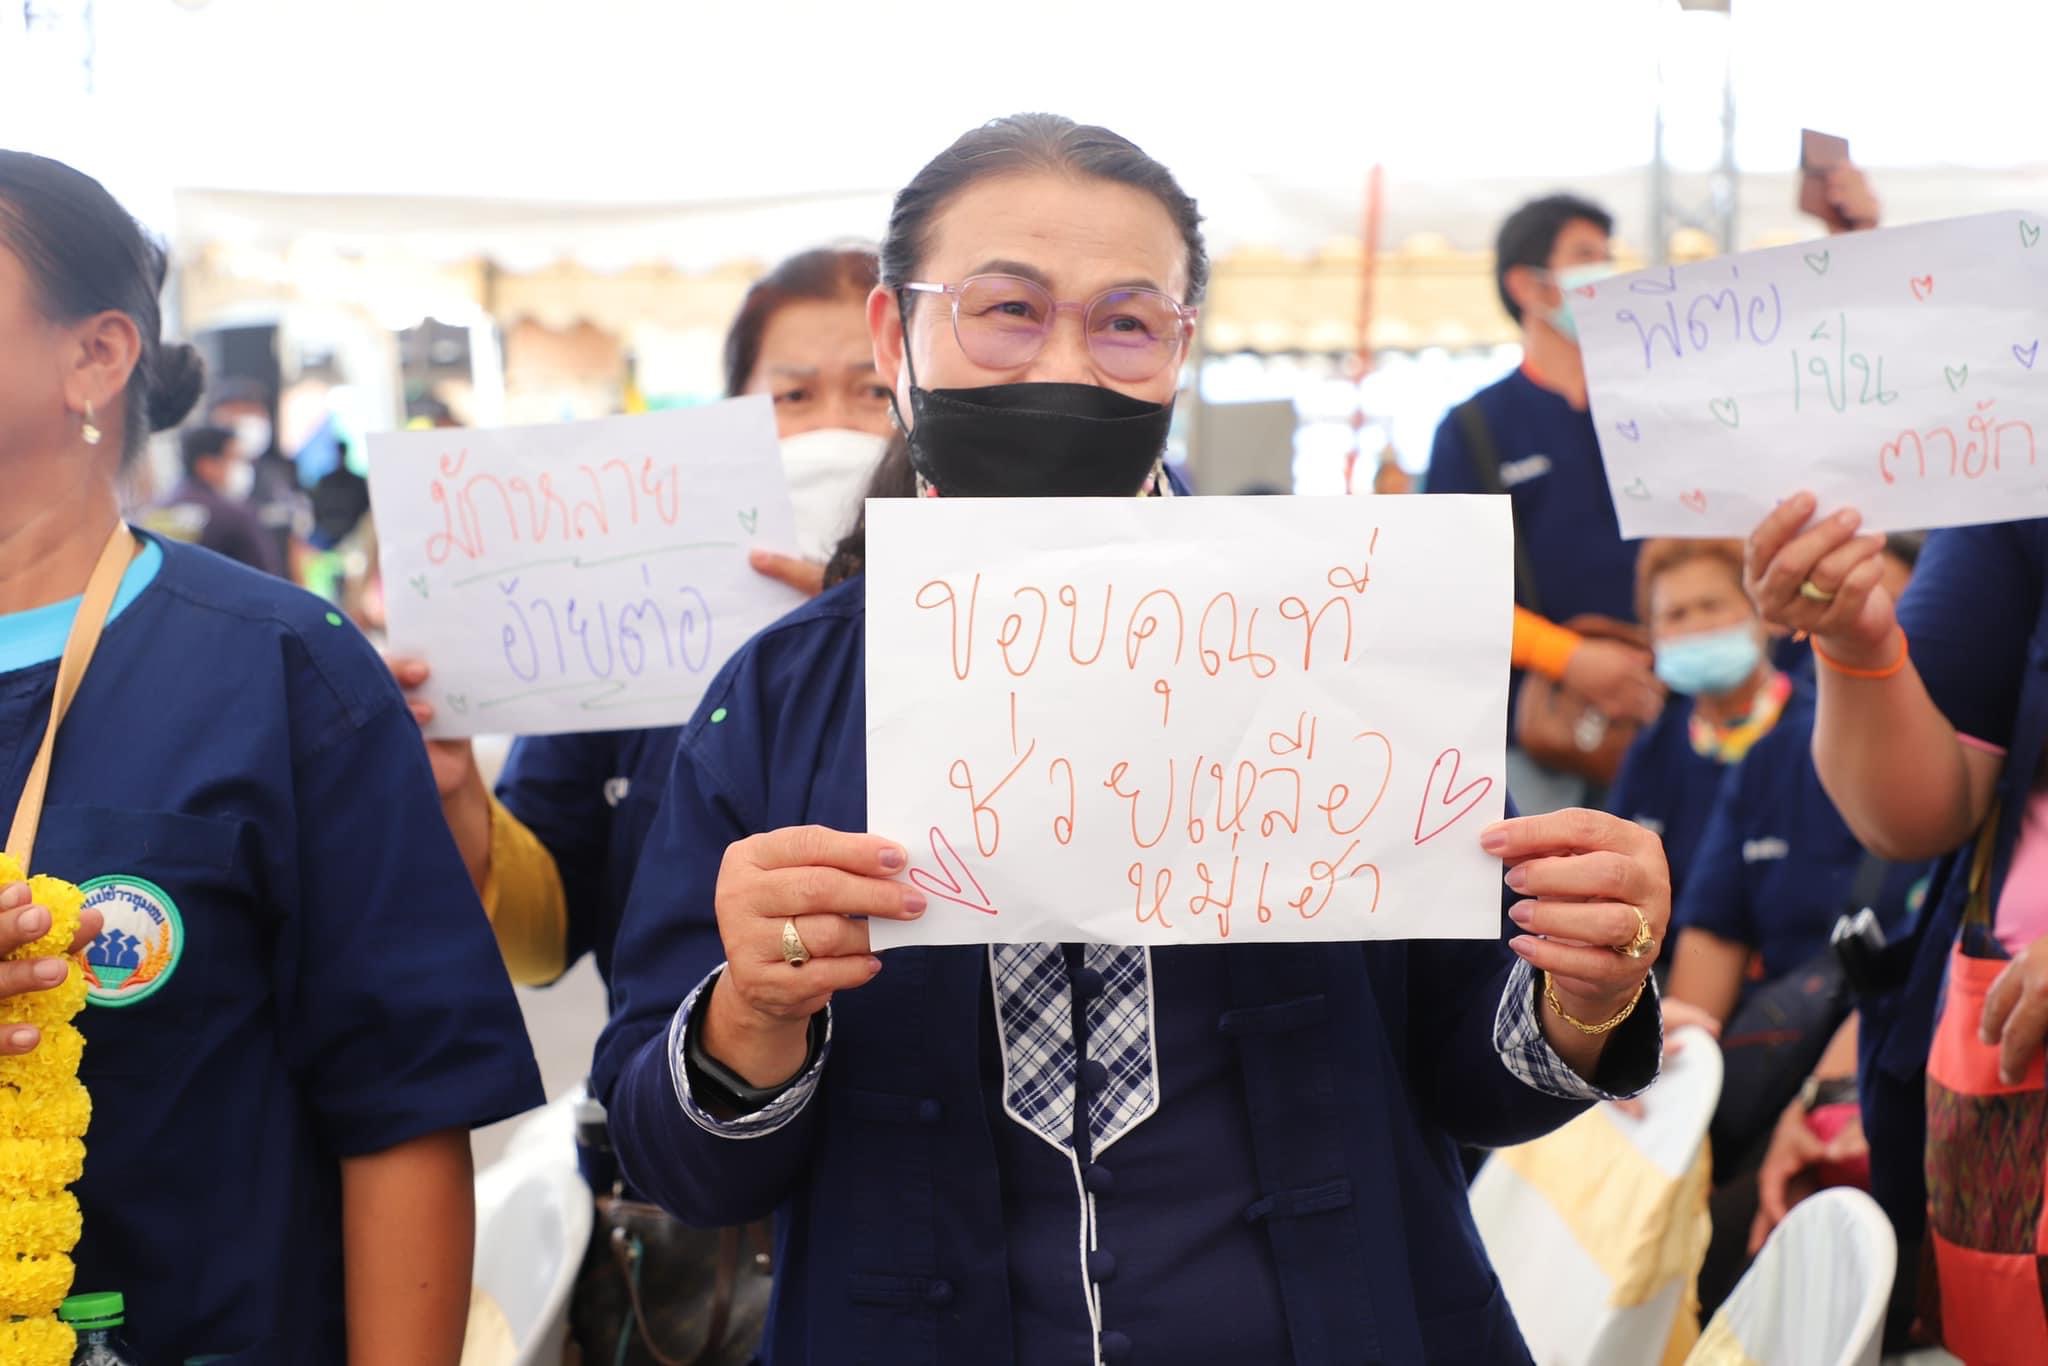 มักหลาย
อ้ายต่อ
ขอบคุณที่
ช่วยเหลือ
หมู่เฮา
พี่ต่อ
เป็น
ตาฮัก